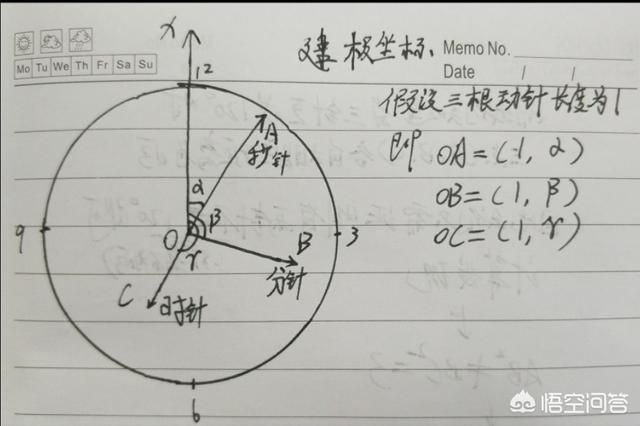 建极坐标. Memo No.
Mo Tu We Th Fr Sa Su Date / /
x
12
假设三根动针长度为1
即 OA=(1, α)
OB=(1, β)
OC=(1, γ)
A
秒针
α
β
9 O 3
γ B
分针
C 时针
6
悟空问答